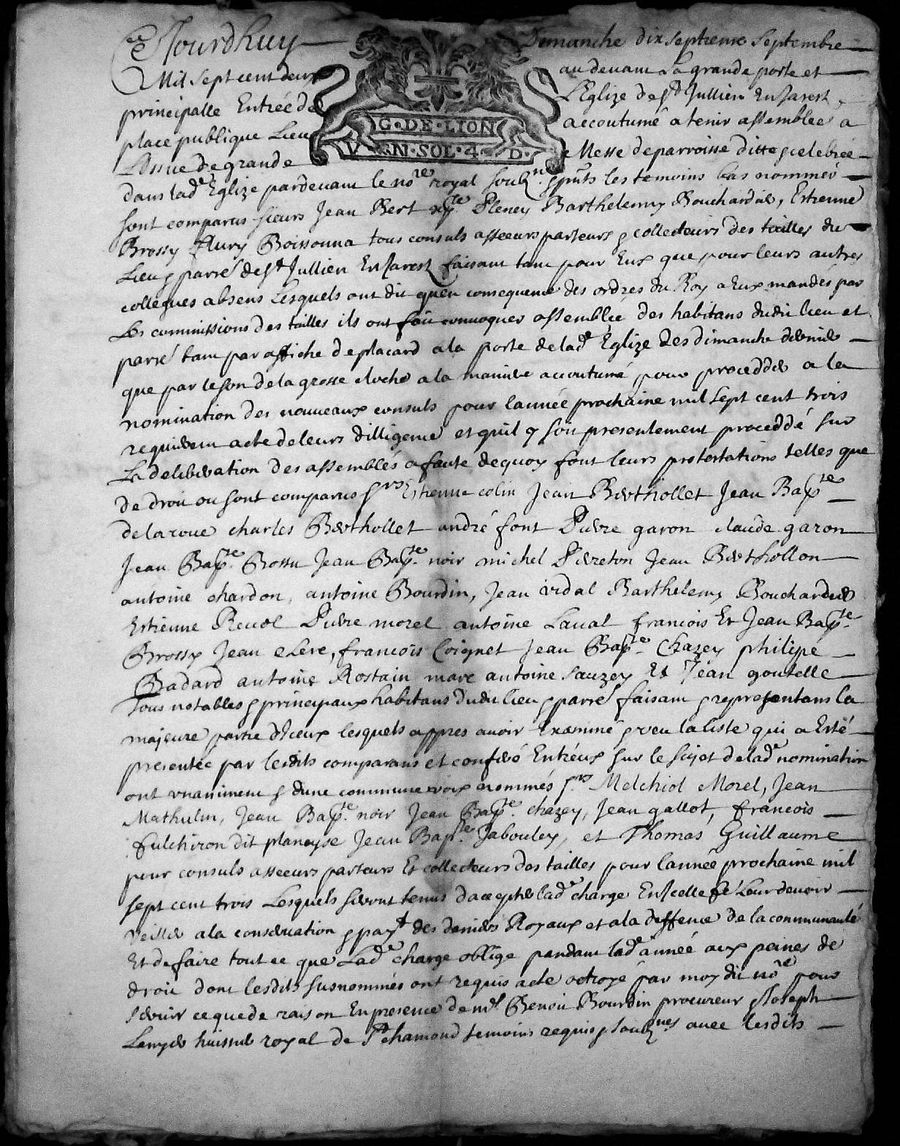 Ce Jourdhuy Dimanche dix septieme Septembre
Mil sept cent deux au devant la grande porte et
principalle Entrée de L'Eglise de St Jullien En Jarest
place publique Lieu accoutumé a tenir assemblée a
G·DE·LION
EN·SOL·4·D·
L'issue de grande Messe de parroisse ditte et celebrée
dans lade Eglise pardevant le nore royal soubzn. pnts les temoins bas nommés
sont comparus sieurs Jean Bert Pleney Barthelemy Bouchardie, Estienne
Brossy fleury Boissonna tous consuls asseeurs parteurs et collecteurs des tailles du
Lieu et parre de St Jullien En Jarest faisant tant pour Eux que pour leurs autres
collegues absens Lesquels ont dit qu'en consequence des ordres du Roy a Eux mandés par
Les commissions des tailles ils ont fait convoquer assemblée des habitans dudit lieu et
parré tant par affiche de placard a la porte de lade Eglise des dimanche dernier
que par le son de la grosse cloche a la maniere accoutumé pour procedder a la
nomination des nouveaux consuls pour lannée prochaine mil sept cent trois
requierent acte de leurs dilligence et quil y soit presentement proceddé sur
La deliberation des assemblés a faute de quoy font leurs protestations telles que
de droit ou sont comparus srs Estienne colin Jean Berthollet Jean Bapte
delaroue charles Berthollet andré font Pierre garon claude garon
Jean Bapte Bossu Jean Bapte noir michel Pereton Jean Berthollon
antoine chardon, antoine Bourdin, Jean vidal Barthelemy Bouchardie
Estienne Revol Pierre morel antoine Laval francois Et Jean Bapte
Brossy Jean elere, francois Coignet Jean Bapte Chazey philippe
Badard antoine Rostain marc antoine Sauzey Et Jean goutelle
Tous notables et principaux habitans dudit lieu et parré faisant et representans la
majeure partie d'Iceux lesquels appres avoir Examiné et veu la liste qui a Esté
presentée par lesdits comparans et conferé Entreux sur le sujet de lade nomination
ont unaniment et dune commune voix nommés srs Melchiol Morel, Jean
Mathulin, Jean Bapte noir Jean Bapte chazey, Jean gallot, francois
fulchiron dit planeyse Jean Bapte Jabouley, et Thomas Guillaume
pour consuls asseeurs parteurs Et collecteurs des tailles pour lannée prochaine mil
sept cent trois Lesquels seront tenus d'accepter lade charge En Icelle de Leur devoir
veiller a la conservation et payt des deniers Royaux et a la deffence de la communauté
Et de faire tout ce que Lade charge oblige pandant lade année aux peines de
droit dont lesdits susnommés ont requis acte octroyé par moydit nore pour
servir ce que de raison En presence de mr Benoit Bourdin procureur et Joseph
huissier royal de St chamond temoins requis et soubznes avec lesdits